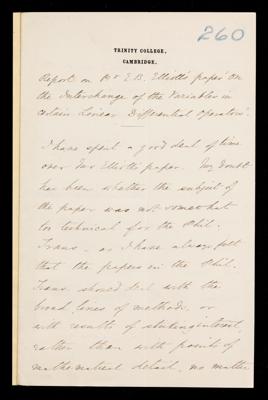 260
TRINITY COLLEGE,
CAMBRIDGE.
Report on Mr E.B. Elliott's paper "On
the Interchange of the Variables in
certain Linear Differential Operators".
I have spent a good deal of time
over Mr Elliott's paper. My doubt
has been whether the subject of
the paper was not somewhat
too technical for the Phil.
Trans., as I have always felt
that the papers in the Phil.
Trans. should deal with the
broad lines of methods, or
with results of striking interest,
rather than with points of
mathematical detail, no matter